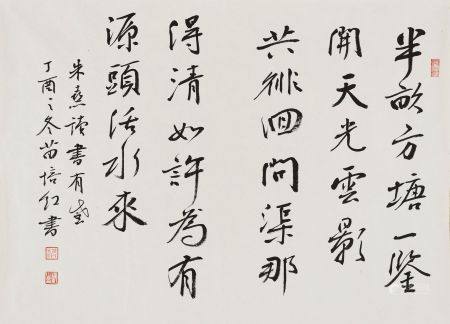 半畝方塘一鑒
開天光雲影
共徘徊問渠那
得清如許為有
源頭活水來
朱熹讀書有感
丁酉之冬苗培红書